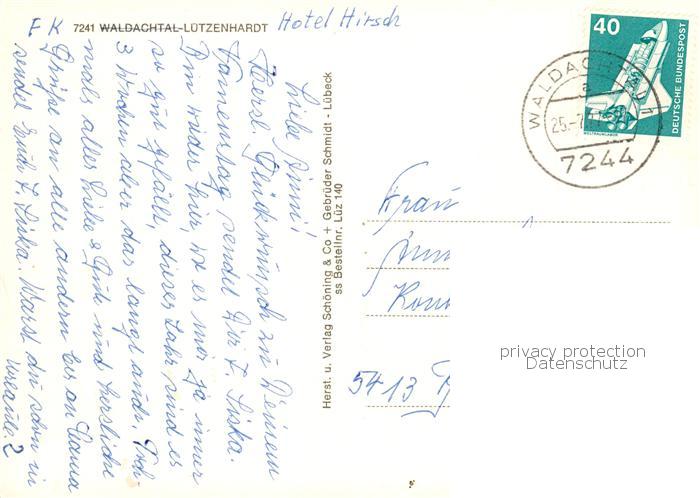 E K 7241 WALDACHTAL-LÜTZENHARDT Hotel Hirsch
Liebe Anni!
Herzl. Glückwunsch zu Deinem
Namenstag, sendet Dir L. Liska.
Bin wieder hier, wo es mir ja immer
so gut gefällt, dieses Jahr sind es
3 Wochen aber das langt auch. Noch
mals alles Liebe & Gute und herzliche
Grüße an alle andern bis an Mama
sendet Euch L. Liska. Warst du schon in
Urlaub?
Herst. u. Verlag Schöning & Co + Gebrüder Schmidt - Lübeck
ss Bestellnr. Lüz 140
40
DEUTSCHE BUNDESPOST
WELTRAUMLABOR
WALDACHTAL 1
a
25.-7.
7244
Frau
5413
privacy protection
Datenschutz